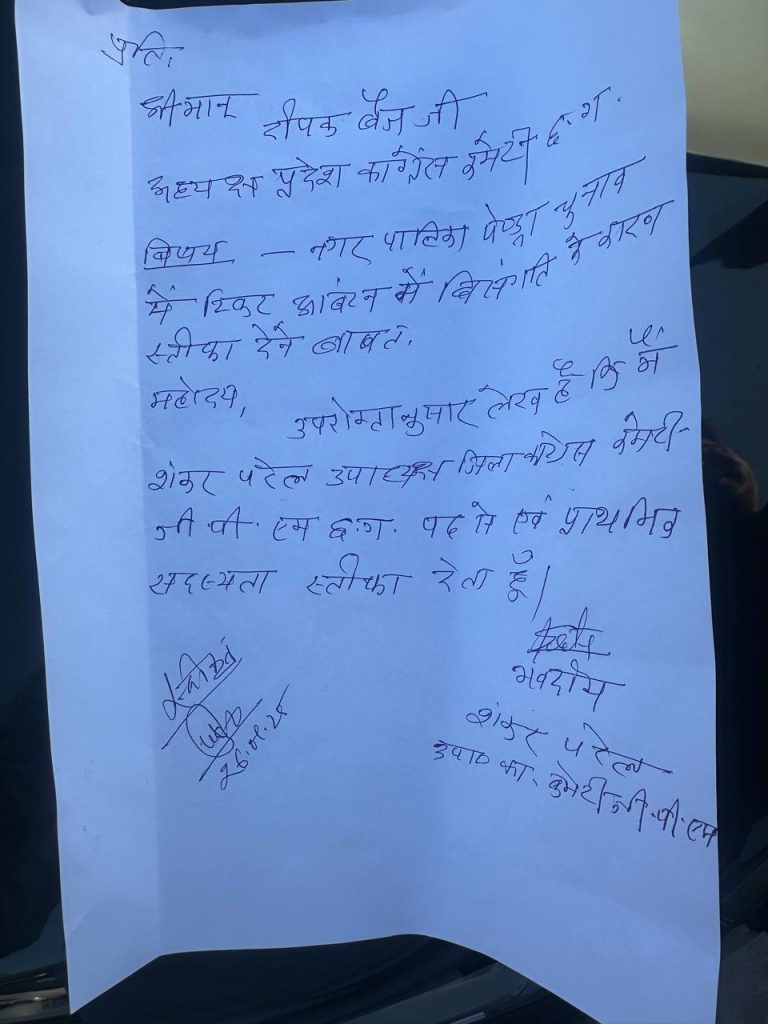 प्रति,
श्रीमान दीपक बैज जी
अध्यक्ष प्रदेश कांग्रेस कमेटी छ.ग.
विषय — नगर पालिका पेण्ड्रा चुनाव
में टिकट आबंटन में विसंगति के कारन
स्तीफा देने बाबत.
महोदय,
उपरोक्तानुसार लेख है कि मैं
शंकर पटेल उपाध्यक्ष जिला कांग्रेस कमेटी
जी.पी.एम छ.ग. पद से एवं प्राथमिक
सदस्यता स्तीफा देता हूँ।
भवदीय
शंकर पटेल
उपाध कां. कमेटी जी.पी.एम